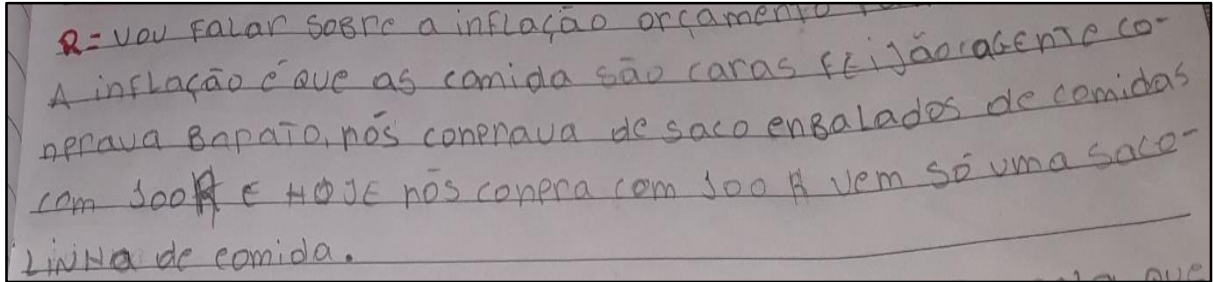 R= vou Falar SOBre a inFlação orçamento
A inFLação é que as comida são caras FEijão a GENTE co-
nprava BaPaTo, nós conprava de saco enBalados de comidas
com 100R E HOJE nós conpra com 100 R vem só uma saco-
LiNHa de comida.
que